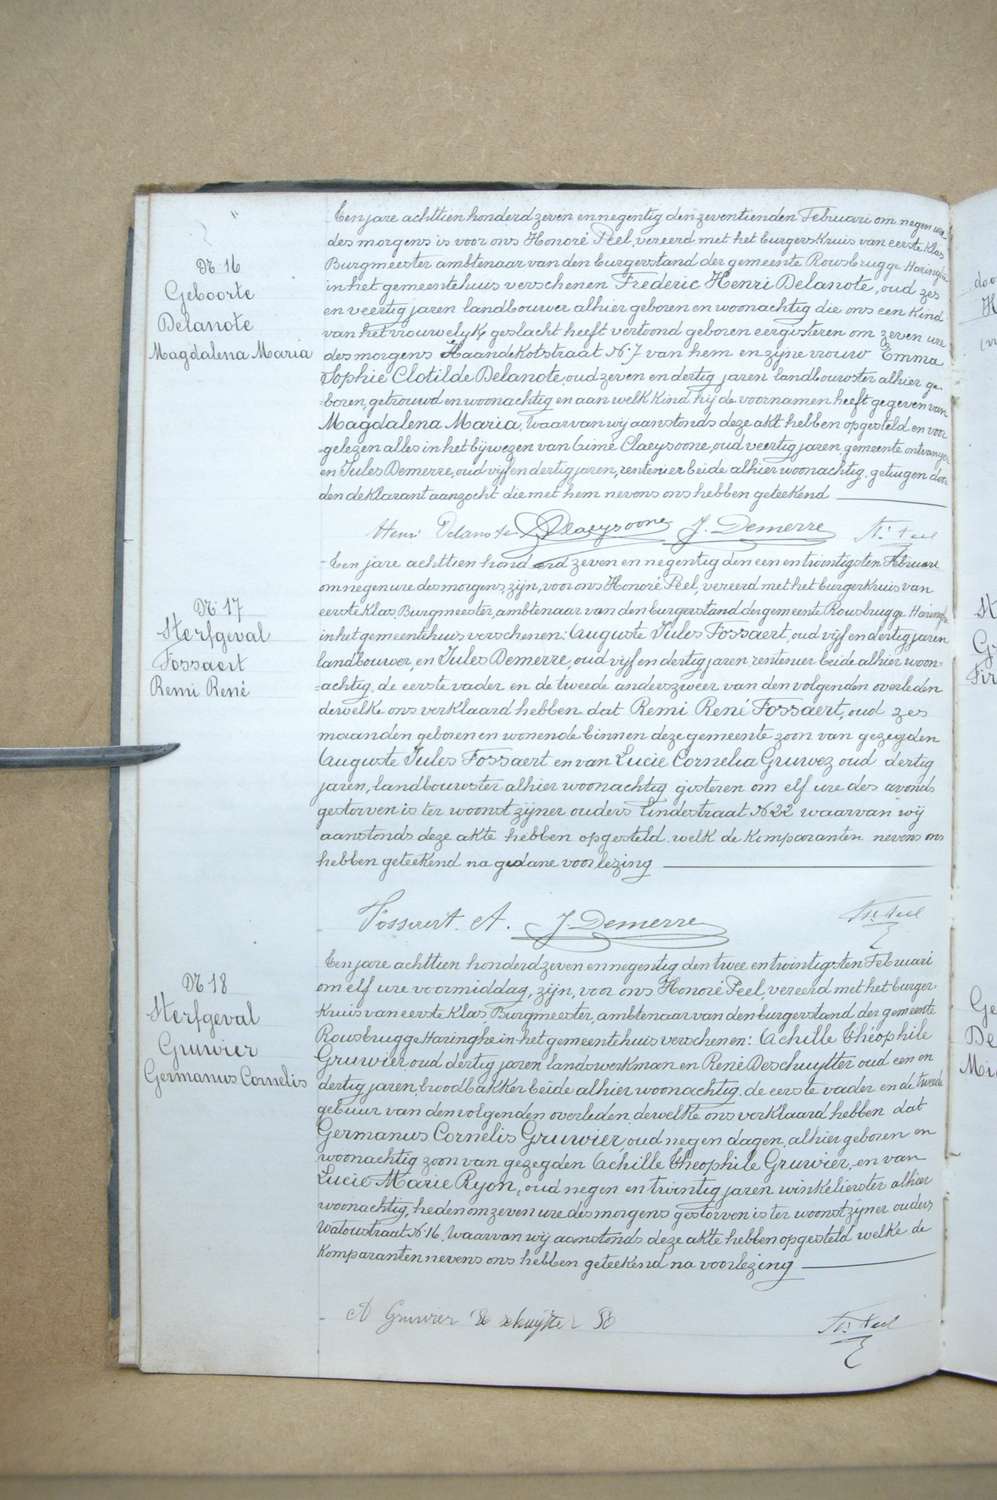 Nr. 16
Geboorte
Delanote
Magdalena Maria
Eenjare achttien honderd zeven en negentig den zeventienden Februari om negen ure
des morgens is voor ons Honoré Peel, vereerd met het burgerskruis van eerste klas
Burgmeester ambtenaar van den burgerstand der gemeente Rousbrugge Haringhe
in het gemeentehuis verschenen Frederic Henri Delanote, oud zes
en veertig jaren landbouwer alhier geboren en woonachtig die ons een kind
van het vrouwelijk geslacht heeft vertoond geboren eergisteren om zeven ure
des morgens Haandekotstraat Nr. 7 van hem en zijne vrouw Emma
Sophie Clotilde Delanote, oud zeven en dertig jaren landbouwster alhier ge-
boren, getrouwd en woonachtig en aan welk kind hij de voornamen heeft gegeven van
Magdalena Maria, Waarvan wij aanstonds deze akt hebben opgesteld en voor
gelezen alles in het bijwezen van Cimé Claeysoone, oud veertig jaren, gemeente ontvanger
en Jules Demerre, oud vijf en dertig jaren, rentenier beide alhier woonachtig. getuigen door
den deklarant aanzocht die met hem nevens ons hebben geteekend
Henri Delanote Claeysoone J. Demerre H. Peel
Nr. 17
Sterfgeval
Fossaert
Remi René
Een jare achttien honderd zeven en negentig den een en twintigsten Februari
om negen ure des morgens, zijn, voor ons Honoré Peel, vereerd met het burgerkruis van
eerste klas, Burgmeester, ambtenaar van den burgerstand der gemeente Rousbrugge Haringhe
in het gemeentehuis verschenen: Auguste Jules Fossaert, oud vijf en dertig jaren
landbouwer, en Jules Demerre, oud vijf en dertig jaren rentenier beide alhier woon-
achtig, de eerste vader en de tweede anderszweer van den volgenden overleden
dewelke ons verklaard hebben dat Remi René Fossaert, oud zes
maanden geboren en wonende binnen deze gemeente zoon van gezegden
Auguste Jules Fossaert en van Lucie Cornelia Gruwez oud dertig
jaren, landbouwster alhier woonachtig gisteren om elf ure des avonds
gestorven is ter woonst zijner ouders Lindestraat Nr. 22 waarvan wij
aanstonds deze akte hebben opgesteld welk de komparanten nevens ons
hebben geteekend na gedane voorlezing
Fossaert A. J. Demerre H. Peel
Nr. 18
Sterfgeval
Gruwier
Germanus Cornelis
Eenjare achttien honderd zeven en negentig den twee en twintigsten Februari
om elf ure voormiddag, zijn, voor ons Honoré Peel, vereerd met het burger-
kruis van eerste klas Burgmeester, ambtenaar van den burgerstand der gemeente
Rousbrugge Haringhe in het gemeentehuis verschenen: Achille Théophile
Gruwier oud dertig jaren landswerkman en René Deschuytter oud een en
dertig jaren, broodbakker beide alhier woonachtig. de eerste vader en de tweede
gebuur van den volgenden overleden, dewelke ons verklaard hebben dat
Germanus Cornelis Gruwier, oud negen dagen, alhier geboren en
woonachtig zoon van gezegden Achille Théophile Gruwier, en van
Lucie Marie Ryon, oud negen en twintig jaren winkelierster alhier
woonachtig, heden om zeven ure des morgens gestorven is ter woonst zijner ouders
Watoustraat Nr. 16. Waarvan wij aanstonds deze akte hebben opgesteld welke de
komparanten nevens ons hebben geteekend na voorlezing
A Gruwier De schuytter H. Peel